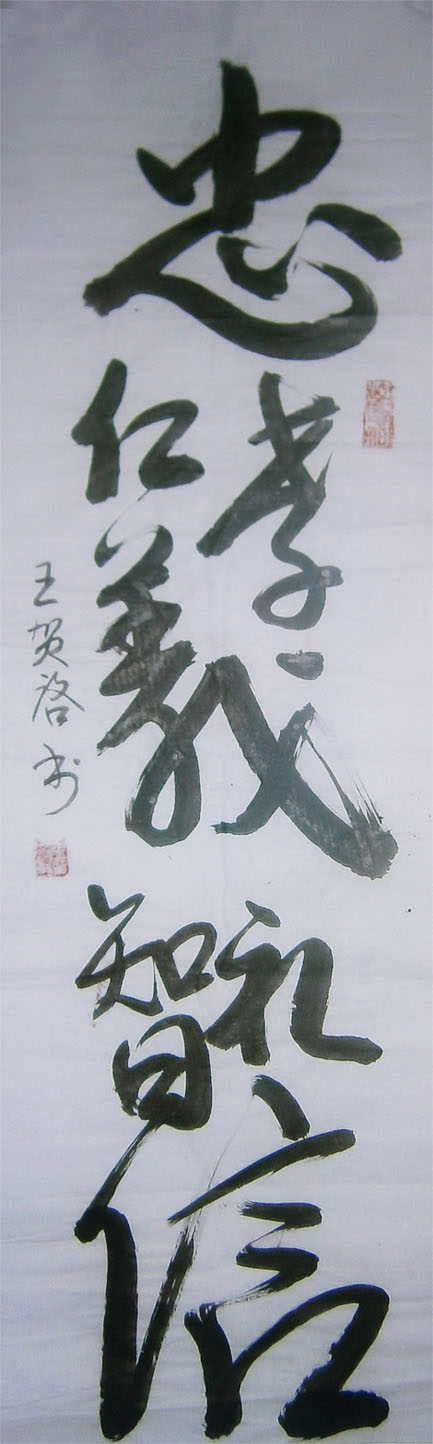 忠孝仁義礼智信
王贺启书